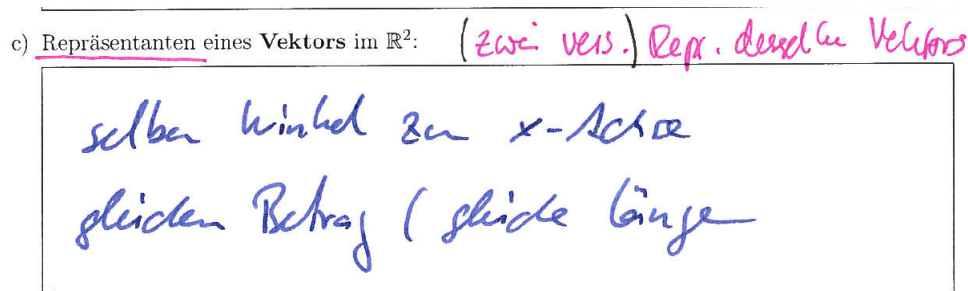 c) Repräsentanten eines Vektors im ℝ²: (zwei vers.) Repr. desselben Vektors
selben Winkel zur x-Achse
gleichen Betrag ( gleiche Länge